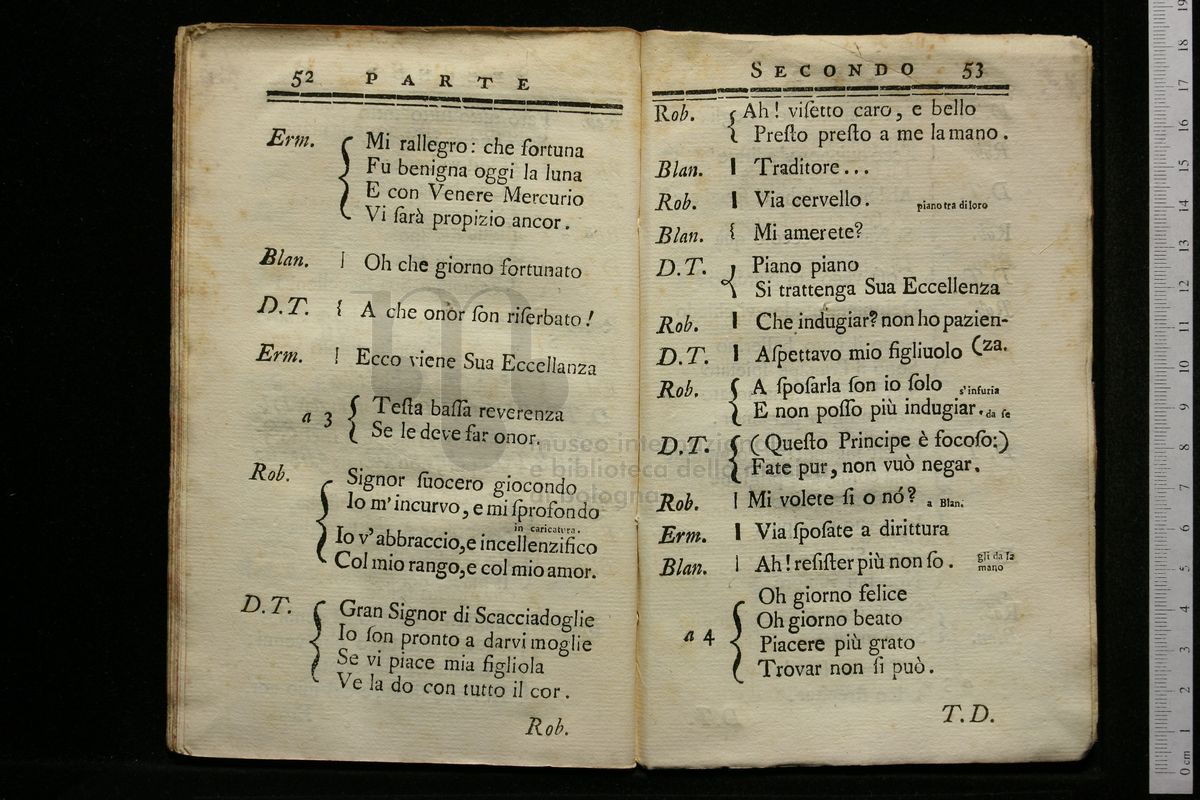 52 PARTE
Erm. Mi rallegro: che fortuna
Fu benigna oggi la luna
E con Venere Mercurio
Vi ſarà propizio ancor.
Blan. Oh che giorno fortunato
D.T. A che onòr ſon riſerbato!
Erm. Ecco viene Sua Eccellanza
a 3 Teſta baſſa reverenza
Se le deve far onor.
Rob. Signor ſuocero giocondo
Io m'incurvo, e mi ſprofondo
in caricatura.
Io v'abbraccio, e incellenzifico
Col mio rango, e col mio amor.
D.T. Gran Signor di Scacciadoglie
Io ſon pronto a darvi moglie
Se vi piace mia figliola
Ve la do con tutto il cor.
Rob.
SECONDO 53
Rob. Ah! viſetto caro, e bello
Preſto preſto a me la mano.
Blan. Traditore...
Rob. Via cervello. piano tra di loro
Blan. Mi amerete?
D.T. Piano piano
Si trattenga Sua Eccellenza
Rob. Che indugiar? non ho pazien-
D.T. Aſpettavo mio figliuolo (za.
Rob. A ſpoſarla ſon io ſolo s'infuria
E non poſſo più indugiar. da ſe
D.T. (Queſto Principe è focoſo:)
Fate pur, non vuò negar.
Rob. Mi volete ſi o nó? a Blan.
Erm. Via ſpoſate a dirittura
Blan. Ah! reſiſter più non ſo. gli da la
mano
a 4 Oh giorno felice
Oh giorno beato
Piacere più grato
Trovar non ſi può.
T.D.
museo internazionale
e biblioteca della musica
di bologna
0 cm 1 2 3 4 5 6 7 8 9 10 11 12 13 14 15 16 17 18 19